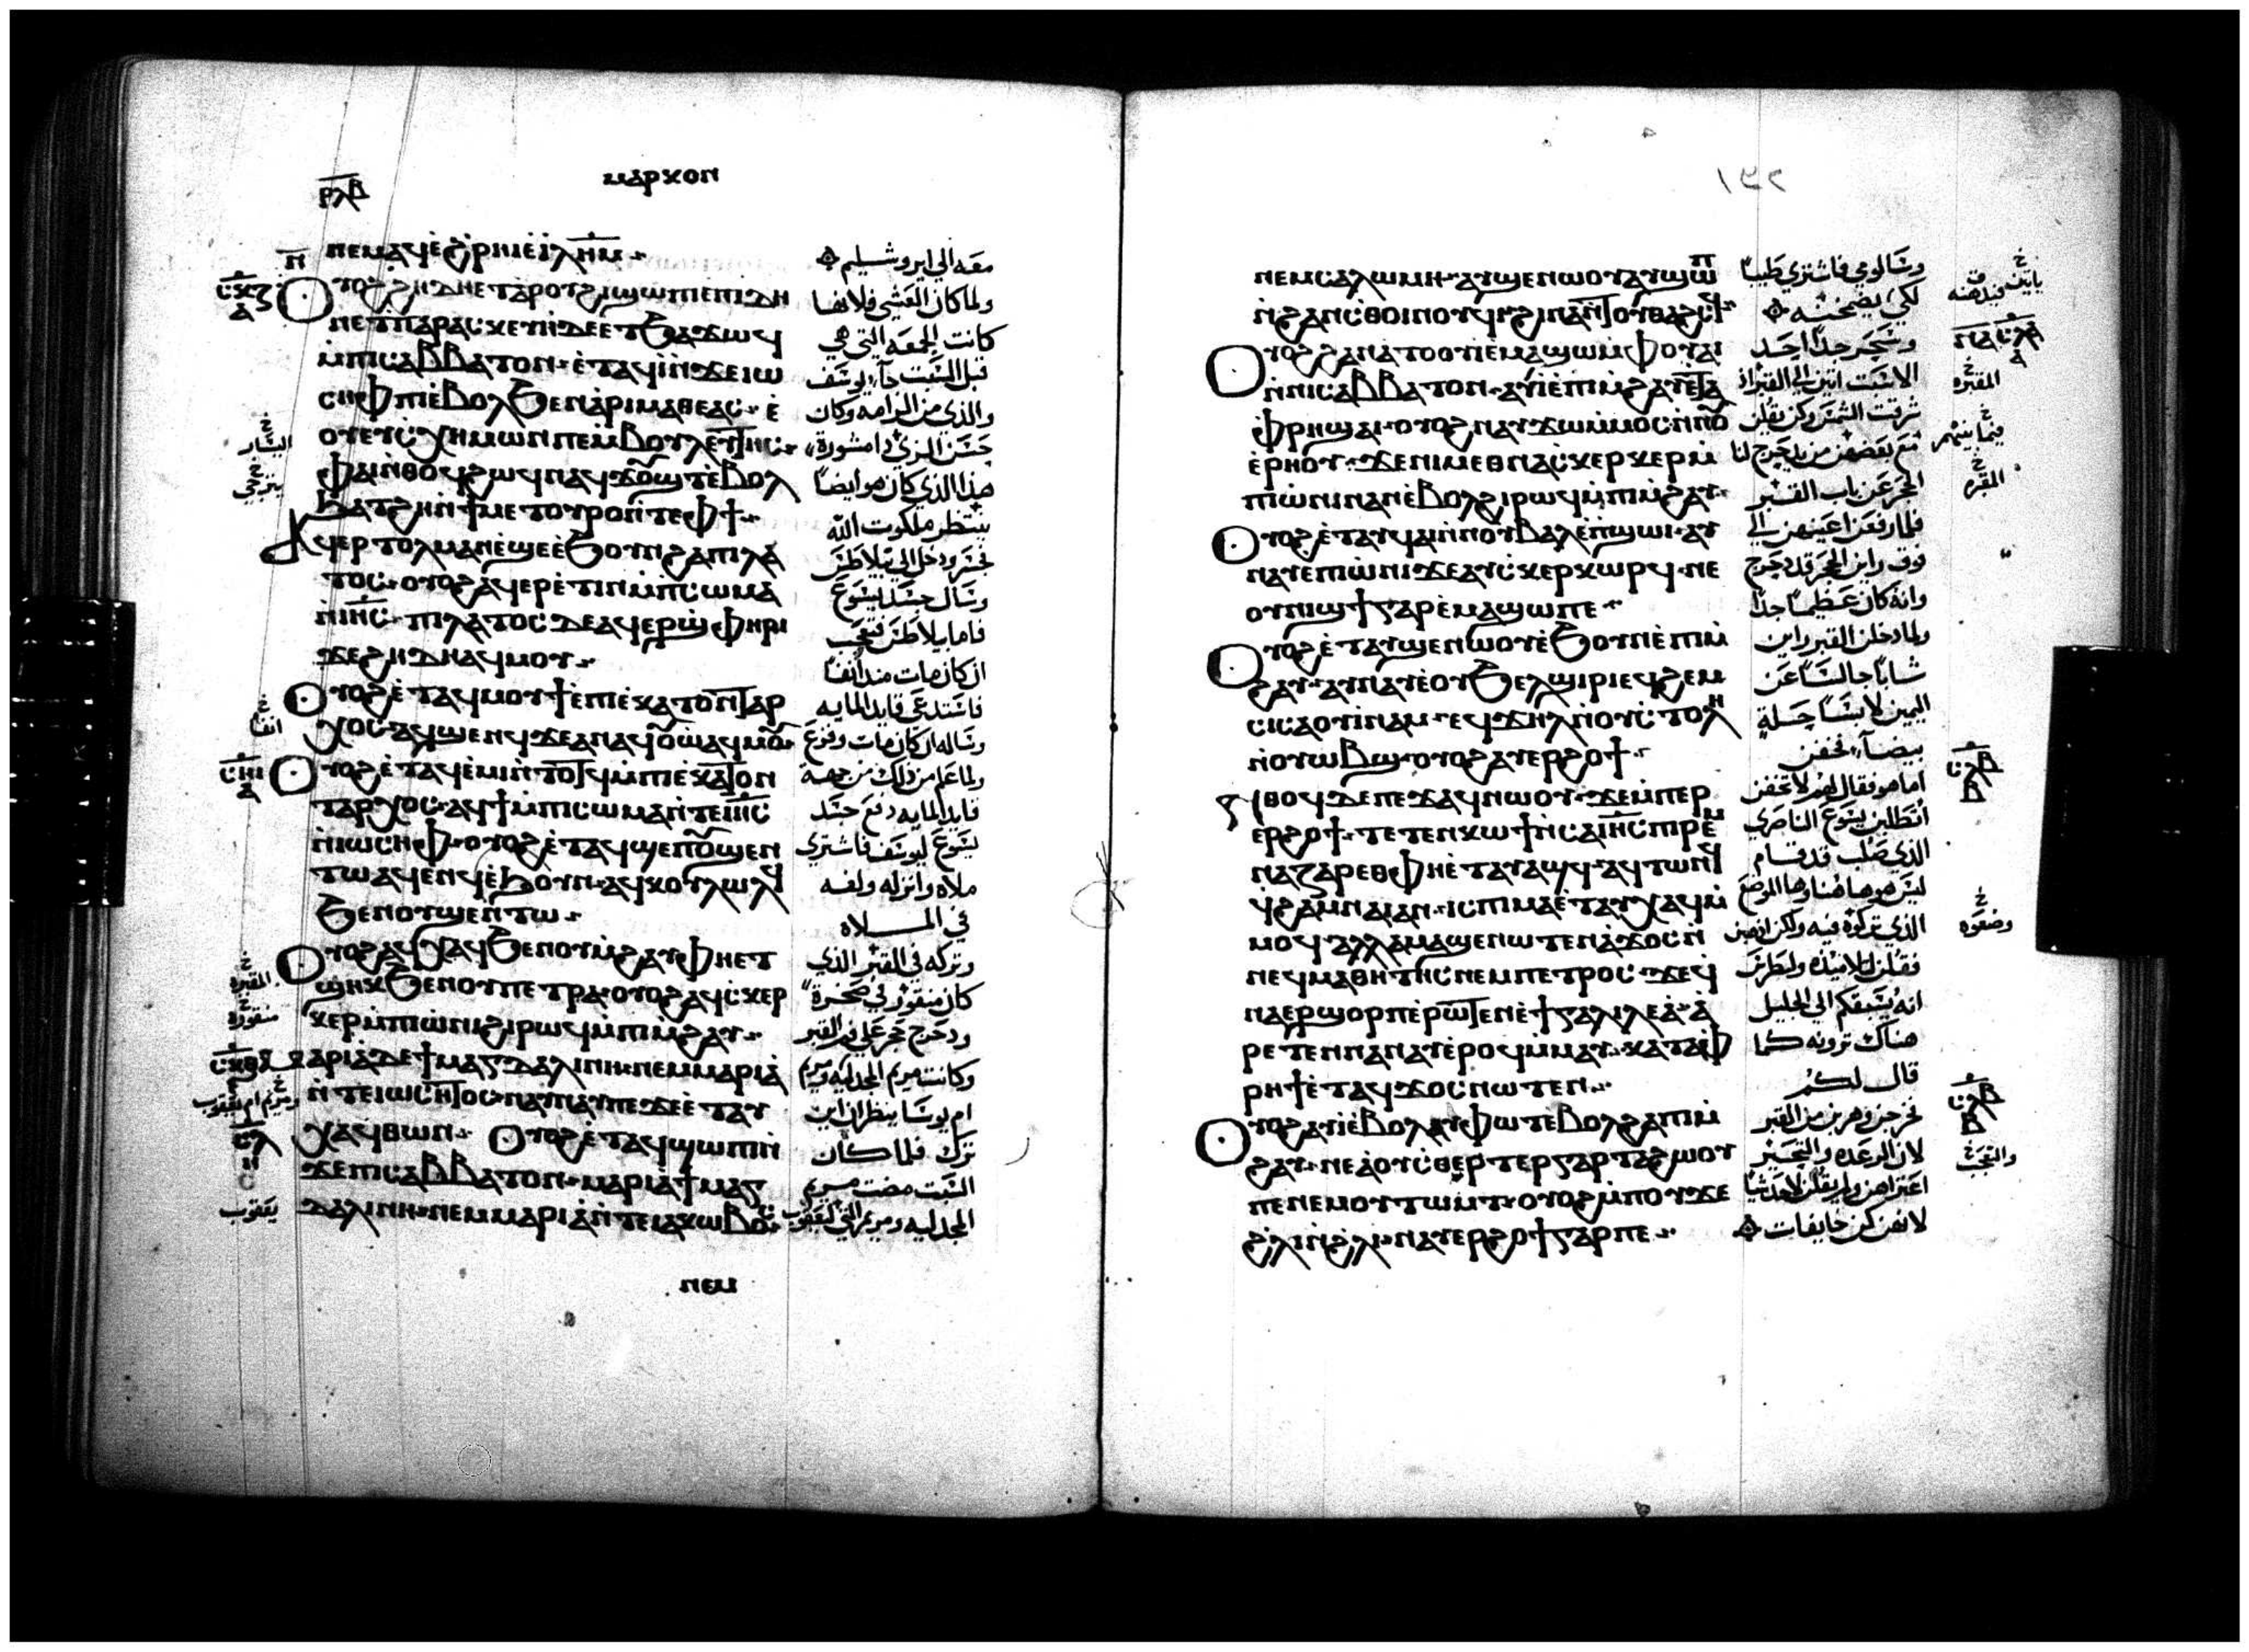 ⲣⲗⲃ
ⲙⲁⲣⲕⲟⲛ
ⲛⲉⲙⲁϥⲉ̀ϩ̀ⲣⲏⲓⲉ̀ⲓⲗⲏⲙ
ⲟⲩⲟϩϩⲏⲇⲏⲉⲧⲁⲣⲟⲩϩⲓϣⲱⲡⲓⲉⲡⲓⲇⲏ
ⲛⲉϯⲡⲁⲣⲁⲥⲕⲉⲩⲏⲇⲉⲉⲧϧⲁϫⲱϥ
ⲙ̀ⲡⲓⲥⲁⲃⲃⲁⲧⲟⲛ ⲉ̀ⲧⲁϥⲓ̀ⲛ̀ϫⲉⲓⲱ
ⲥⲏⲫⲡⲓⲉ̀ⲃⲟⲗϧⲉⲛⲁⲣⲓⲙⲁⲑⲉⲁⲥ ⲉ̀
ⲟⲩⲉⲩⲥⲭⲏⲙⲱⲛⲡⲉⲙ̀ⲃⲟⲩⲗⲉⲩⲧⲏⲥ
ⲫⲁⲓⲛ̀ⲑⲟϥϩⲱϥⲛⲁϥϫⲟⲩϣⲧⲉ̀ⲃⲟⲗ
ϧⲁⲧϩⲏⲛ̀ϯⲙⲉⲧⲟⲩⲣⲟⲛ̀ⲧⲉⲫϯ
ⲁϥⲉⲣⲧⲟⲗⲙⲁⲛⲉ̀ϣⲉⲉ̀ϧⲟⲩⲛϩⲁⲡⲓⲗⲁ
ⲧⲟⲥ ⲟⲩⲟϩⲁϥⲉⲣⲉ̀ⲧⲓⲛⲙ̀ⲡⲓⲥⲱⲙⲁ
ⲛ̀ⲓⲏⲥ ⲡⲓⲗⲁⲧⲟⲥⲇⲉⲁϥⲉⲣϣⲫⲏⲣⲓ
ϫⲉϩⲏⲇⲏⲁϥⲙⲟⲩ
ⲟⲩⲟϩⲉ̀ⲧⲁϥⲙⲟⲩϯⲉ̀ⲡⲓⲉⲕⲁⲧⲟⲛⲧⲁⲣ
ⲭⲟⲥ ⲁϥϣⲉⲛϥϫⲉⲁⲛⲁϥⲟⲩⲱⲁϥⲙⲟⲩ
ⲟⲩⲟϩⲉ̀ⲧⲁϥⲉ̀ⲙⲓⲛ̀ⲧⲟⲧϥⲙ̀ⲡⲓⲉⲕⲁⲧⲟⲛ
ⲧⲁⲣⲭⲟⲥ ⲁϥϯⲙ̀ⲡⲓⲥⲱⲙⲁⲛ̀ⲧⲉⲓⲏⲥ
ⲛ̀ⲓⲱⲥⲏⲫ ⲟⲩⲟϩⲉ̀ⲧⲁϥϣⲉⲡⲟⲩϣⲉⲛ
ⲧⲱⲁϥⲉⲛϥⲉ̀ϧⲟⲩⲛ ⲁϥⲕⲟⲩⲗⲱⲗϥ
ϧⲉⲛⲟⲩϣⲉⲛⲧⲱ
ⲟⲩⲟϩⲁϥⲭⲁϥϧⲉⲛⲟⲩⲙ̀ϩⲁⲩⲫⲏⲉⲧ
ϣⲏⲕϧⲉⲛⲟⲩⲡⲉⲧⲣⲁ ⲟⲩⲟϩⲁϥⲥⲕⲉⲣ
ⲕⲉⲣⲙ̀ⲡⲓⲱ̀ⲛⲓϩⲓⲣⲱϥⲙ̀ⲡⲓⲙϩⲁⲩ
ⲙⲁⲣⲓⲁⲇⲉϯⲙⲁⲅⲇⲁⲗⲓⲛⲏ ⲛⲉⲙⲙⲁⲣⲓⲁ
ⲛ̀ⲧⲉⲓⲱⲥⲏⲧⲟⲥⲛⲁⲩⲛⲁⲩⲡⲉϫⲉⲉ̀ⲧⲁⲩ
ⲭⲁϥⲑⲱⲛ ⲟⲩⲟϩⲉ̀ⲧⲁϥϣⲱⲡⲓⲛ̀
ϫⲉⲡⲓⲥⲁⲃⲃⲁⲧⲟⲛ ⲙⲁⲣⲓⲁϯⲙⲁⲅ
ⲇⲁⲗⲓⲛⲏ ⲛⲉⲙⲙⲁⲣⲓⲁⲛ̀ⲧⲉⲓⲁⲕⲱⲃⲟⲥ
ⲛⲉⲙ
معه الي ايروشليم
ولما كان العشي فلانها
كانت الجمعه التي هي
قبل السبت جآ يوسف
والذي من الرامه وكان
حسن الزي ذا مشورة
هذا الذي كان هو ايضاً
ينتظر ملكوت الله
فجسر ودخل الي بيلاطس
وسال جسد يسوع
فاما بيلاطس فتعجب
ان كان مات منذ انفا
فاستدعي قايد المايه
وساله ان كان مات وفرغ
ولما علم من ذلك من جهة
قايد المايه دفع جسد
يسوع ليوسف فاشتري
ملاه وانزله ولفه
في الملاه
وتركه في القبر الذي
كان منقور في صخرة
ودحرج حجر علي فم القبر
وكانت مريم المجدليه ومريم
ام يوسا ينظران اين
ترك فلما كان
السبت مضت مريم
المجدليه ومريم التي ليعقوب
يعقوب
٢٩١
ⲛⲉⲙⲥⲁⲗⲱⲙⲏ ⲁⲩϣⲉⲛⲱⲟⲩⲁⲩϣⲱⲡ
ⲛ̀ϩⲁⲛⲥⲑⲟⲓⲛⲟⲩϥⲓ ϩⲓⲛⲁⲛ̀ⲧⲟⲩⲑⲁϩⲥϥ
ⲟⲩⲟϩϩⲁⲛⲁⲧⲟⲟⲩⲓⲉ̀ⲙⲁϣⲱⲙ̀ⲫⲟⲩⲁⲓ
ⲛ̀ⲛⲓⲥⲁⲃⲃⲁⲧⲟⲛ ⲁⲩⲓ̀ⲉ̀ⲡⲓⲙ̀ϩⲁⲩⲉ̀ⲧⲁ
ⲫⲣⲏϣⲁⲓ ⲟⲩⲟϩⲛⲁⲩϫⲱⲙ̀ⲙⲟⲥⲛ̀ⲛⲟⲩ
ⲉ̀ⲣⲏⲟⲩ ϫⲉⲛⲓⲙⲉⲑⲛⲁⲥⲕⲉⲣⲕⲉⲣⲙ̀
ⲡⲓⲱ̀ⲛⲓⲛⲁⲛⲉ̀ⲃⲟⲗϩⲓⲣⲱϥⲙ̀ⲡⲓⲙ̀ϩⲁⲩ
ⲟⲩⲟϩⲉ̀ⲧⲁⲩϥⲁⲓⲛ̀ⲛⲟⲩⲃⲁⲗⲉ̀ⲡϣⲱⲓ ⲁⲩ
ⲛⲁⲩⲉ̀ⲡⲓⲱ̀ⲛⲓϫⲉⲁⲩⲥⲕⲉⲣⲕⲱⲣϥ ⲛⲉ
ⲟⲩⲛⲓϣϯⲅⲁⲣⲉ̀ⲙⲁϣⲱⲡⲉ
ⲟⲩⲟϩⲉ̀ⲧⲁⲩϣⲉⲛⲱⲟⲩⲉ̀ϧⲟⲩⲛⲉ̀ⲡⲓⲙ̀
ϩⲁⲩ ⲁⲩⲛⲁⲩⲉ̀ⲟⲩϧⲉⲗϣⲓⲣⲓⲉϥϩⲉⲙ
ⲥⲓⲥⲁⲟⲩⲓ̀ⲛⲁⲙ ⲉϥϫⲏⲗⲛ̀ⲟⲩⲥⲧⲟⲗⲏ
ⲛ̀ⲟⲩⲱⲃϣ ⲟⲩⲟϩⲁⲩⲉⲣϩⲟϯ
ⲛ̀ⲑⲟϥⲇⲉⲡⲉϫⲁϥⲛⲱⲟⲩ ϫⲉⲙ̀ⲡⲉⲣ
ⲉⲣϩⲟϯ ⲧⲉⲧⲉⲛⲕⲱϯⲛ̀ⲥⲁⲓⲏⲥⲡⲓⲣⲉⲙ
ⲛⲁⲍⲁⲣⲉⲑⲫⲏⲉ̀ⲧⲁⲩⲁϣϥ ⲁϥⲧⲱⲛϥ
ϥ̀ⲭⲁⲙⲛⲁⲓⲁⲛ ⲓⲥⲡⲓⲙⲁⲉ̀ⲧⲁⲩⲭⲁϥⲙ̀
ⲙⲟϥ ⲁⲗⲗⲁⲙⲁϣⲉⲛⲱⲧⲉⲛⲁ̀ϫⲟⲥⲛ̀
ⲛⲉϥⲙⲁⲑⲏⲧⲏⲥⲛⲉⲙⲡⲉⲧⲣⲟⲥ ϫⲉϥ̀
ⲛⲁⲉⲣϣⲟⲣⲡⲉ̀ⲣⲱⲧⲉⲛⲉ̀ϯⲅⲁⲗⲓⲗⲉⲁ ⲁ̀
ⲣⲉⲧⲉⲛⲛⲁⲛⲁⲩⲉ̀ⲣⲟϥⲙ̀ⲙⲁⲩ ⲕⲁⲧⲁⲫ
ⲣⲏϯⲉ̀ⲧⲁϥϫⲟⲥⲛⲱⲧⲉⲛ
ⲟⲩⲟϩⲁⲩⲓ̀ⲉ̀ⲃⲟⲗⲁⲩⲫⲱⲧⲉ̀ⲃⲟⲗϩⲁⲡⲓⲙ̀
ϩⲁⲩ ⲛⲉⲁ̀ⲟⲩⲥⲑⲉⲣⲧⲉⲣⲅⲁⲣⲧⲁϩⲱⲟⲩ
ⲡⲉⲛⲉⲙⲟⲩⲧⲱⲙⲧ ⲟⲩⲟϩⲙ̀ⲡⲟⲩϫⲉ
ϩⲗⲓⲛ̀ϩⲗⲓ ⲛⲁⲩⲉⲣϩⲟϯⲅⲁⲣⲡⲉ
وسالومي فاشتري طيباً
لكي يضمخنه
وسحر جداً احد
الاسبت اتين الي القبر اذ
شرقت الشمس وكن يقلن
مع بعضهن من يدحرج لنا
الحجر عن باب القبر
فلما رفعن اعينهن الي
فوق راين الحجر قد دحرج
وانه كان عظيماً جداً
ولما دخلن القبر راين
شاباً جالساً عن
اليمين لابساً حلة
بيضآ فخفن
اما هو فقال لهن لا تخفن
اتطلبن يسوع الناصري
الذي صلب قد قام
ليس هو هاهنا وها الموضع
الذي تركوه فيه ولكن اذهبن
فقلن لتلاميذه ولبطرس
انه يسبقكم الي الجليل
هناك ترونه كما
قال لكم
فخرجن وهربن من القبر
لان الرعده والتحير
اعتراهن ولم يقلن لاحد شياً
لانهن كن خايفات
المقبره
وضعوه
والتعجب